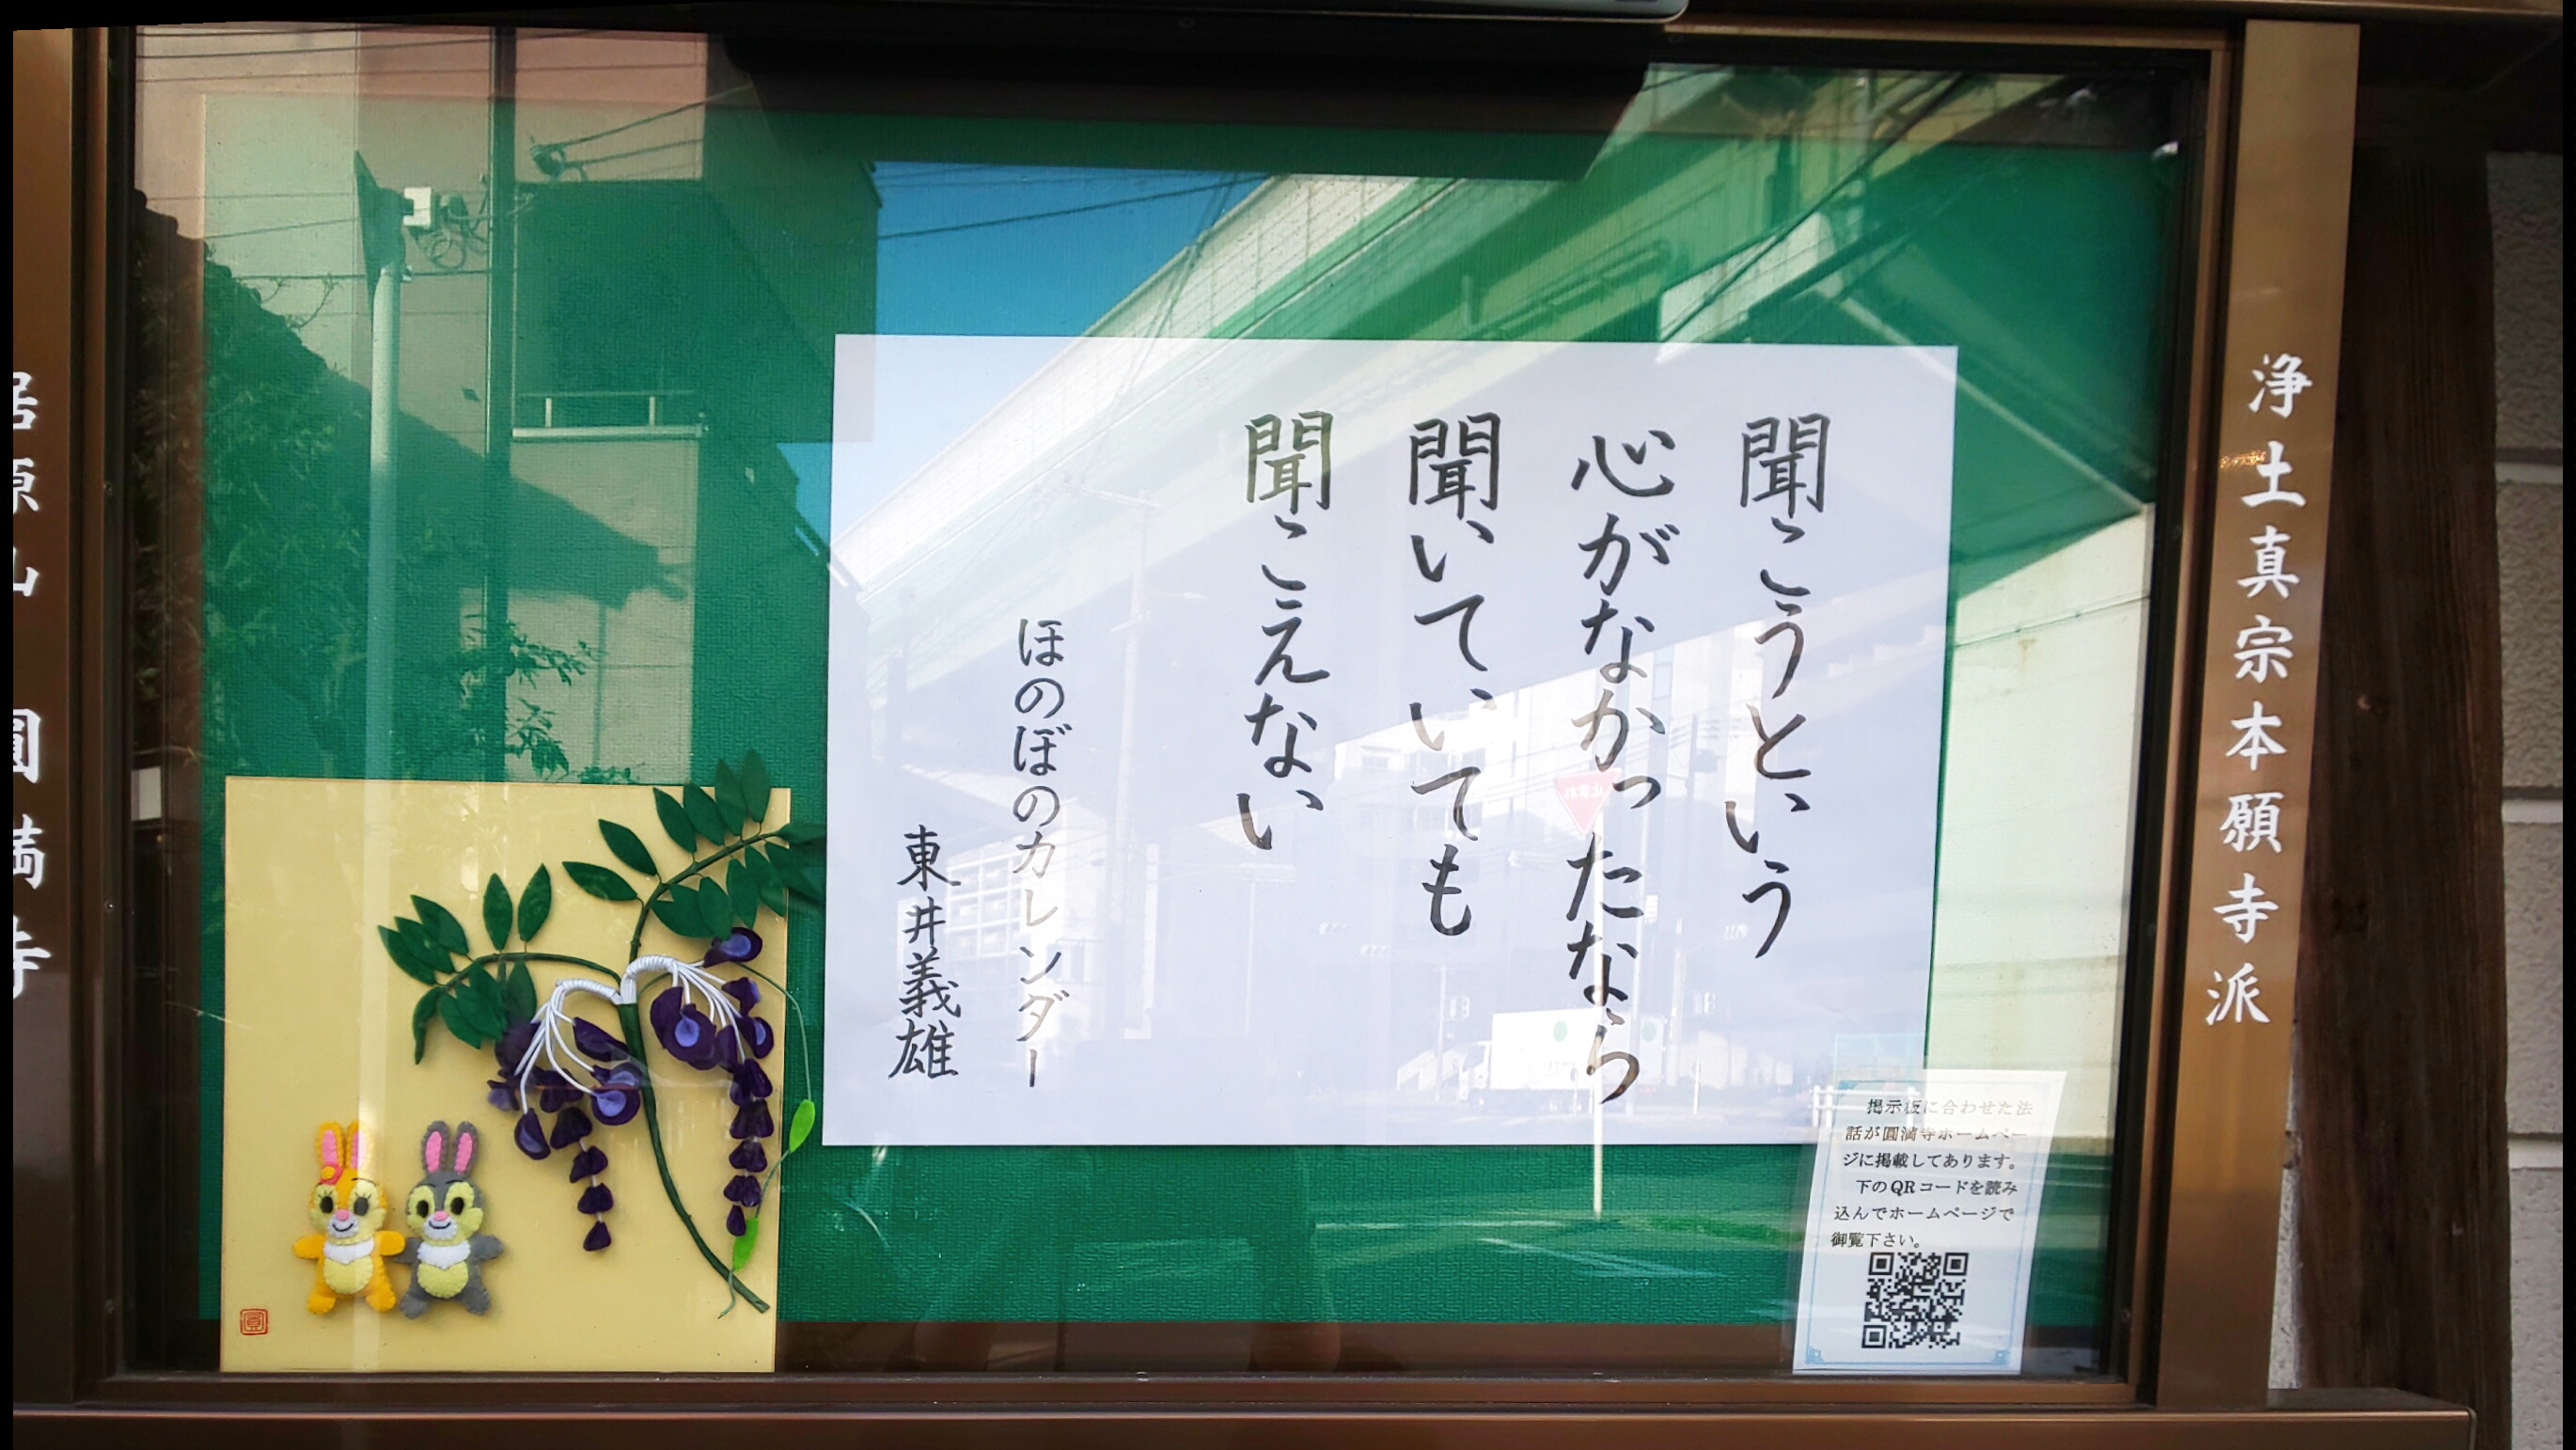 浄土真宗本願寺派
聞こうという
心がなかったなら
聞いていても
聞こえない
ほのぼのカレンダー
東井義雄
掲示板に合わせた法
話が圓満寺ホームペー
ジに掲載してあります。
下のQRコードを読み
込んでホームページで
御覧下さい。
居原山 圓満寺